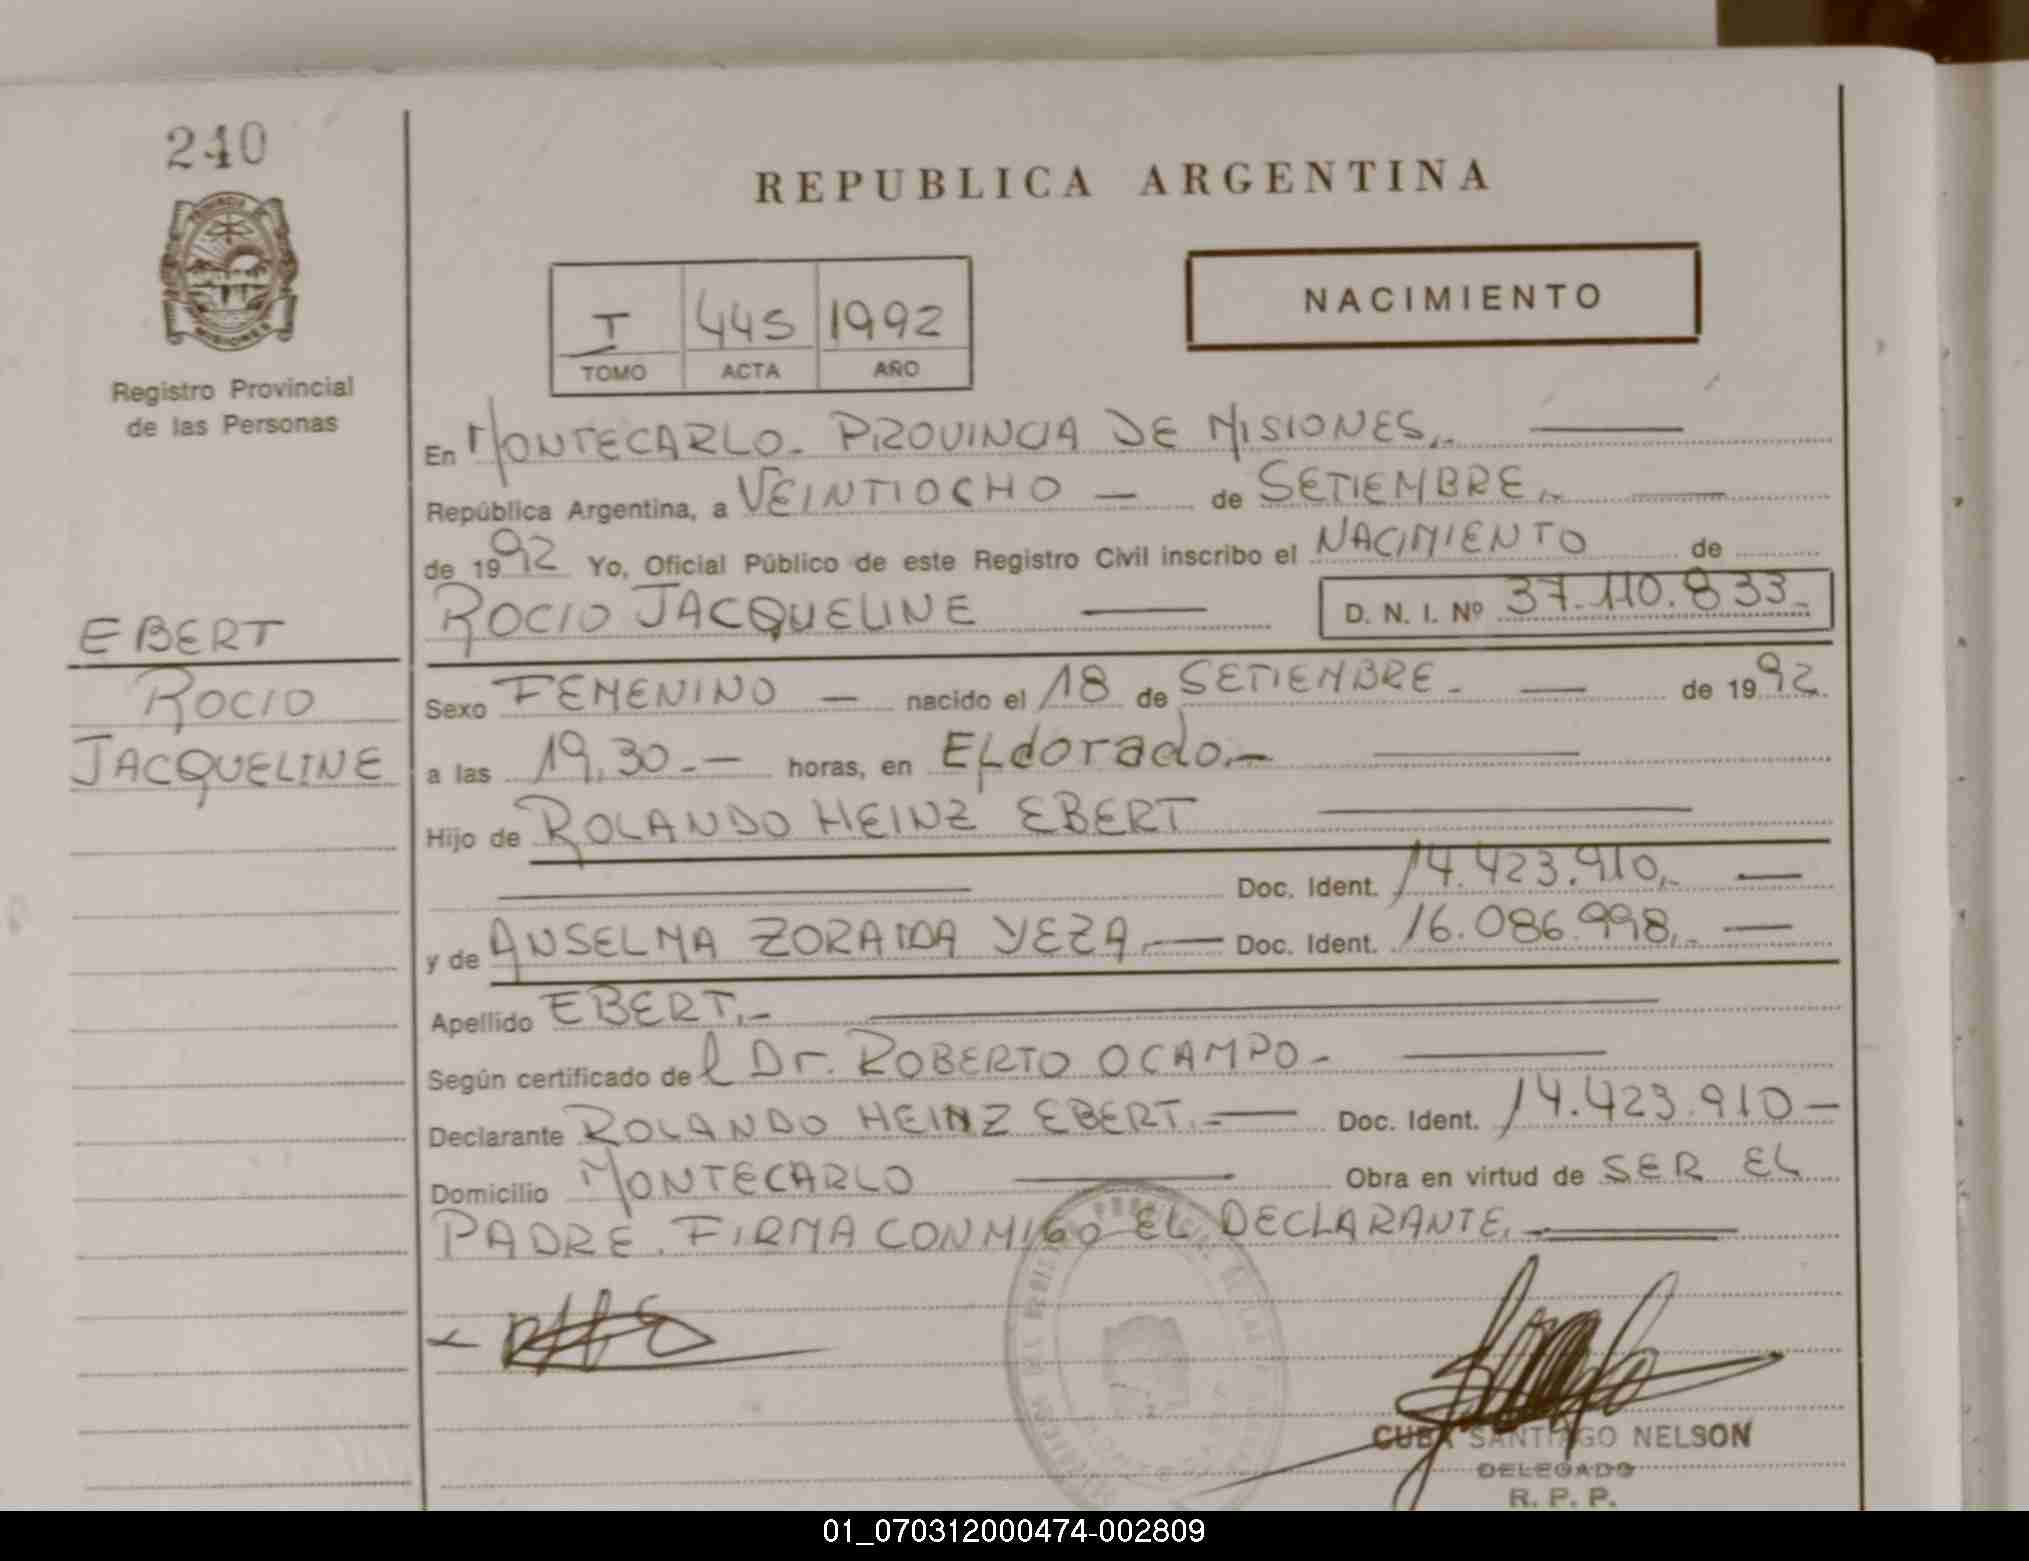 240
REPUBLICA ARGENTINA
PROVINCIA DE
MISIONES
NACIMIENTO
I 445 1992
TOMO ACTA AÑO
Registro Provincial
de las Personas
En MONTECARLO - PROVINCIA DE MISIONES.-
República Argentina, a VEINTIOCHO — de SETIEMBRE.-
de 1992 Yo, Oficial Público de este Registro Civil inscribo el NACIMIENTO de
ROCIO JACQUELINE — D. N. I. Nº 37.110.833.-
EBERT
ROCIO
JACQUELINE
Sexo FEMENINO — nacido el 18 de SETIEMBRE - — de 1992.
a las 19,30.- — horas, en ELdorado.-
Hijo de ROLANDO HEINZ EBERT
Doc. Ident. 14.423.910,- —
y de ANSELMA ZORAIDA YEZA.- Doc. Ident. 16.086.998,- —
Apellido EBERT.-
Según certificado del Dr. ROBERTO OCAMPO -
Declarante ROLANDO HEINZ EBERT.- Doc. Ident. 14.423.910 —
Domicilio MONTECARLO — Obra en virtud de SER EL
PADRE. FIRMA CONMIGO EL DECLARANTE.-
CUBA SANTIAGO NELSON
DELEGADO
R. P. P.
01_070312000474-002809